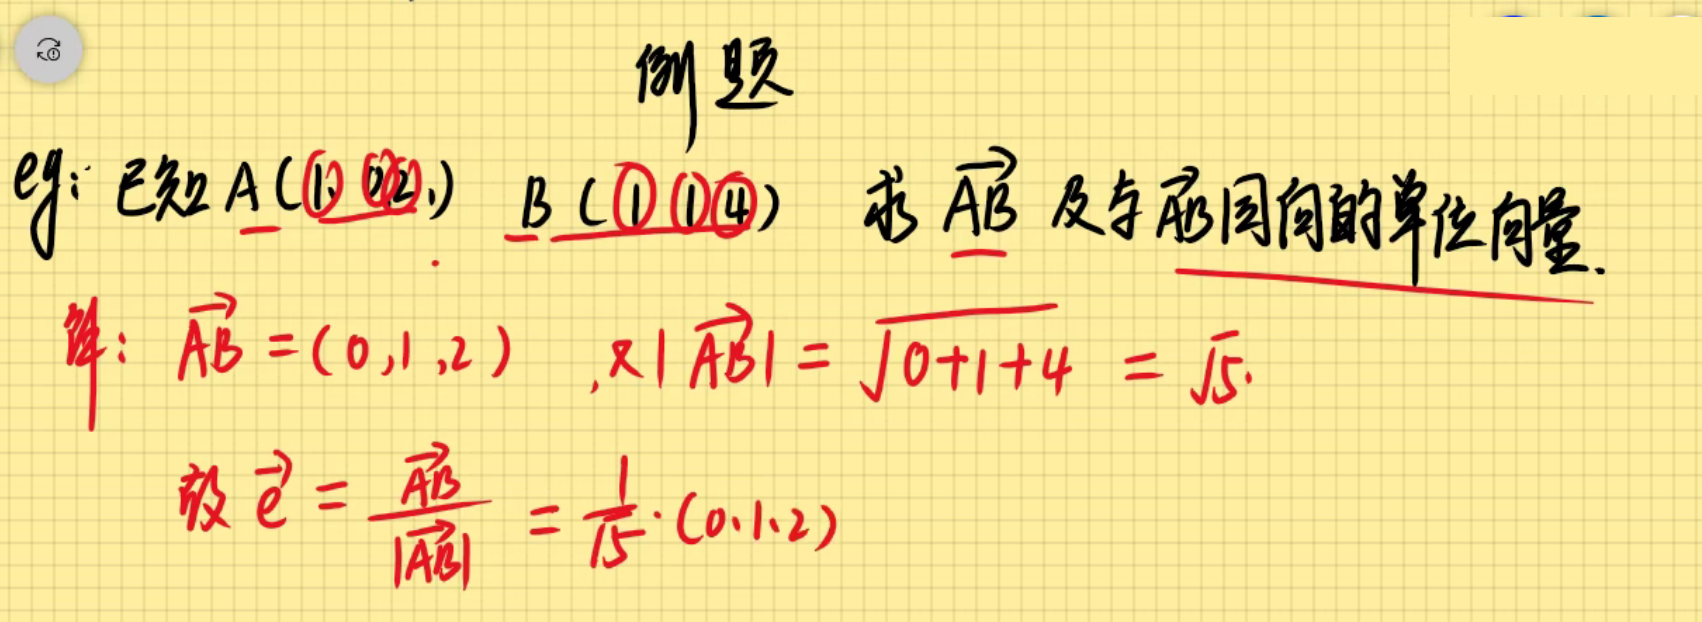 例题
eg: 已知 A(1, 0, 2,) B(1, 1, 4) 求 $\overrightarrow{AB}$ 及与 $\overrightarrow{AB}$ 同向的单位向量.
解: $\overrightarrow{AB}$ = (0, 1, 2), 又|$\overrightarrow{AB}$| = $\sqrt{0+1+4}$ = $\sqrt{5}$.
故 $\vec{e}$ = $\frac{\overrightarrow{AB}}{|\overrightarrow{AB}|}$ = $\frac{1}{\sqrt{5}}$·(0、1、2)